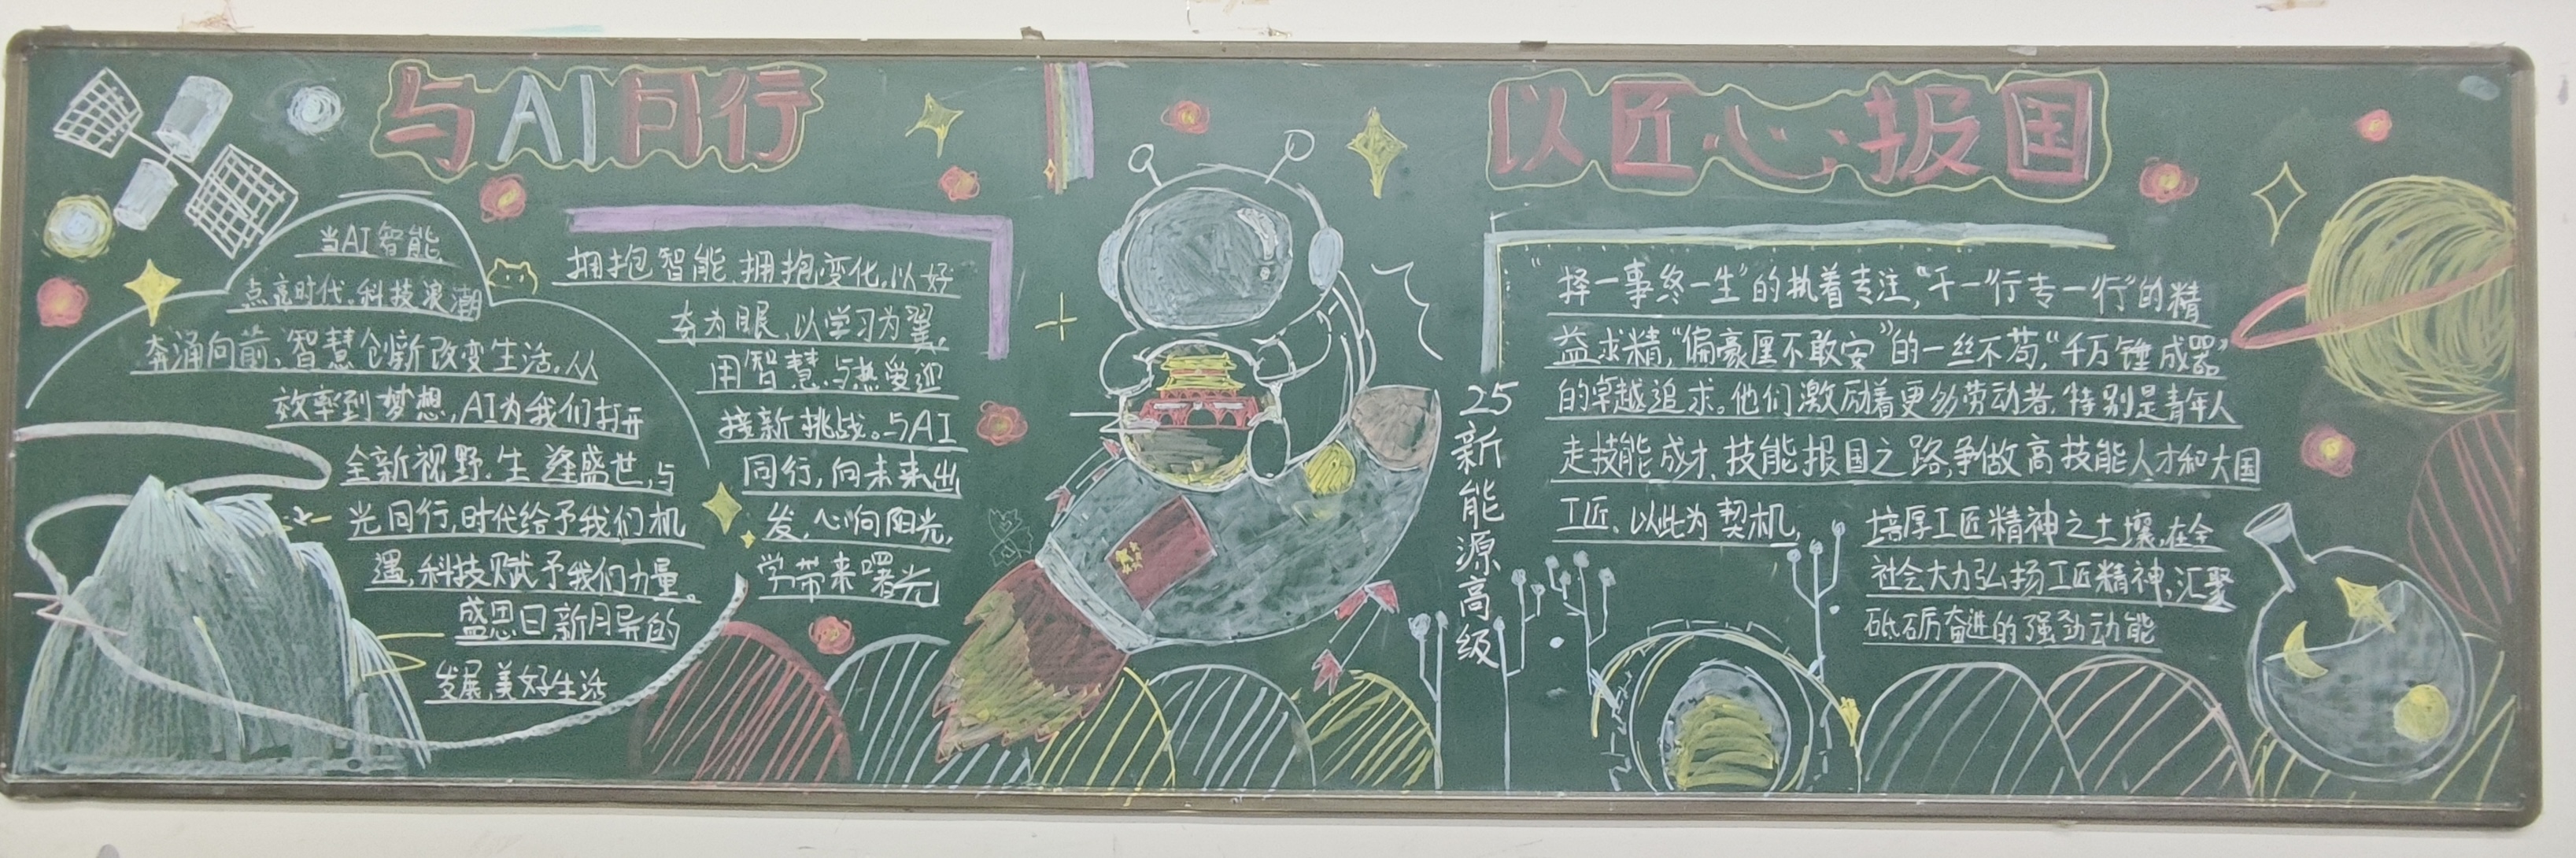 与AI同行
当AI智能
点亮时代。科技浪潮
奔涌向前,智慧创新改变生活。从
效率到梦想,AI为我们打开
全新视野.生逢盛世,与
光同行,时代给予我们机
遇,科技赋予我们力量。
盛思日新月异的
发展美好生活
拥抱智能.拥抱变化,以好
奇为眼,以学习为翼,
用智慧与热爱迎
接新挑战。与AI
同行,向未来出
发,心向阳光,
学带来曙光
25新能源高级
以匠心报国
“择一事终一生”的执着专注,“干一行专一行”的精
益求精,“偏毫厘不敢安”的一丝不苟,“千万锤成器”
的卓越追求。他们激励着更多劳动者,特别是青年人
走技能成才、技能报国之路,争做高技能人才和大国
工匠、以此为契机,
培厚工匠精神之土壤,在全
社会大力弘扬工匠精神,汇聚
砥砺奋进的强劲动能